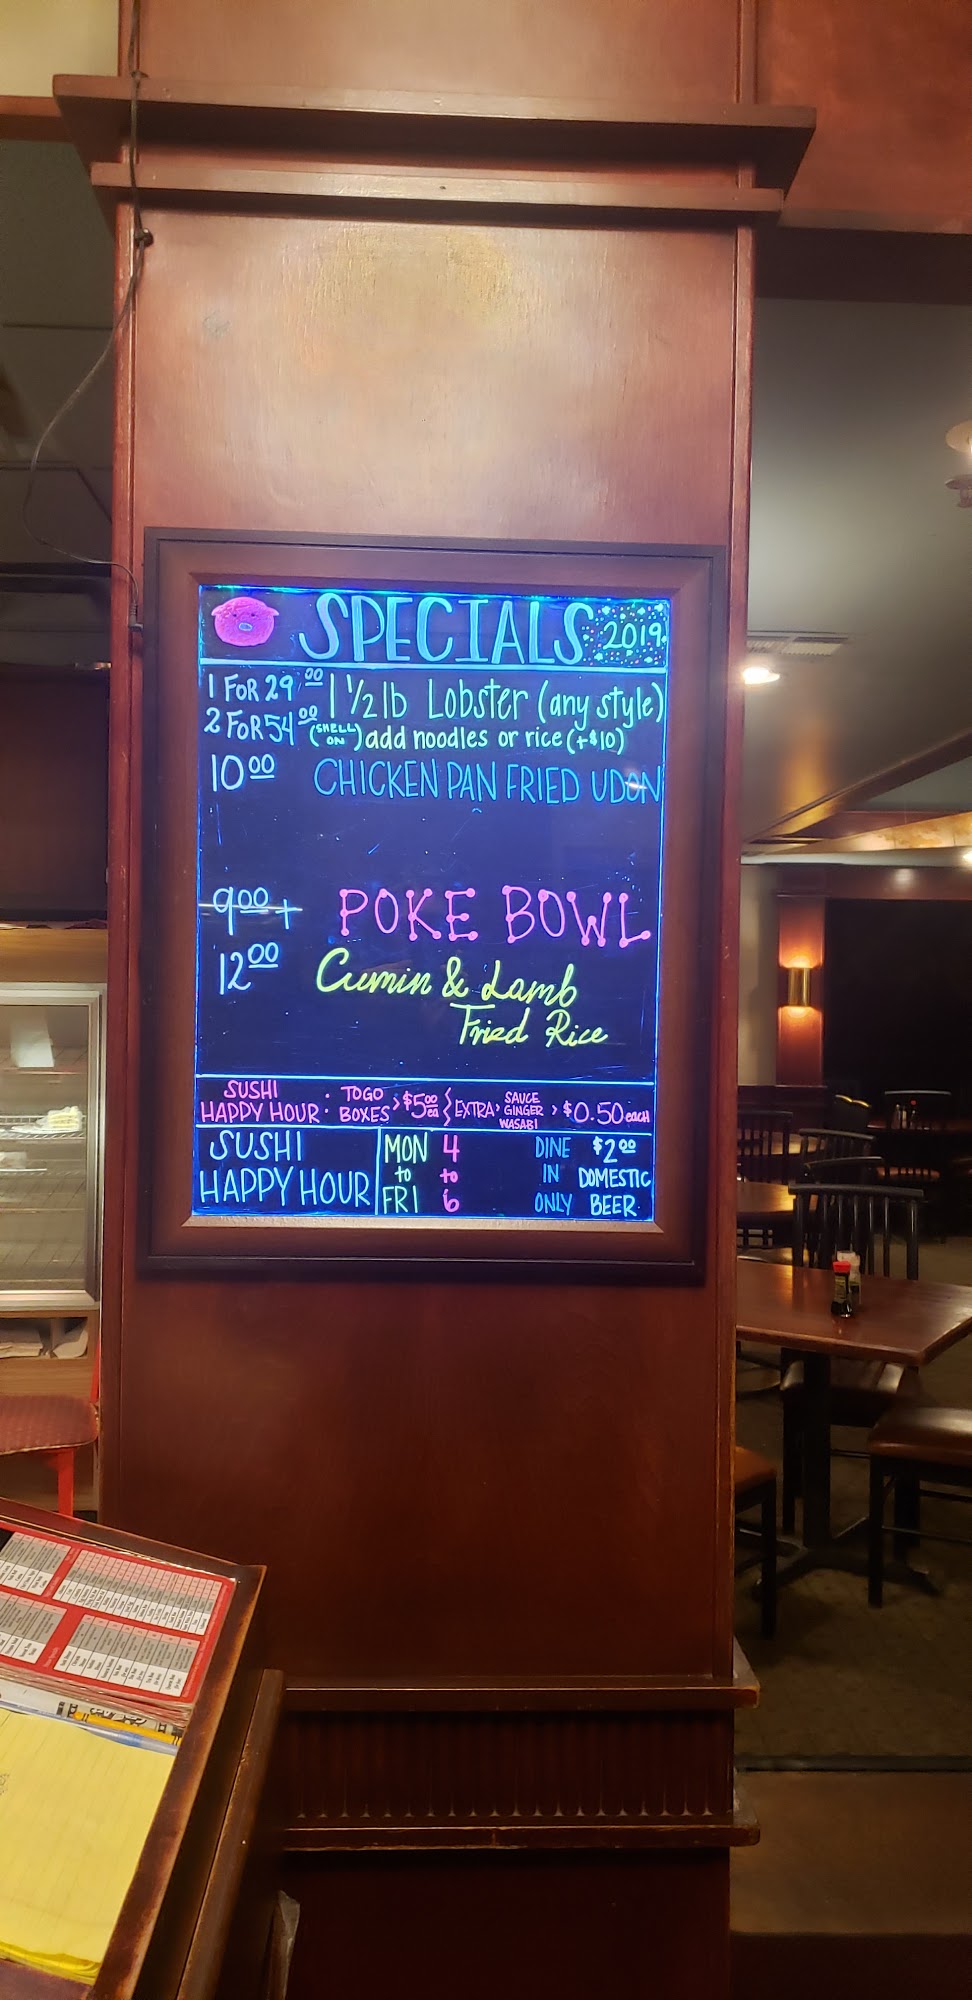 SPECIALS 2019
1 FOR 29 00 1 1/2 lb Lobster (any style)
2 FOR 54 00 (SHELL ON) add noodles or rice (+$10)
10 00 CHICKEN PAN FRIED UDON
9 00 + POKE BOWL
12 00 Cumin & Lamb
Fried Rice
SUSHI HAPPY HOUR : TOGO BOXES > $5 00 ea EXTRA > SAUCE GINGER WASABI > $0.50 each
SUSHI HAPPY HOUR
MON to FRI
4 to 6
DINE IN ONLY
$2 00 DOMESTIC BEER